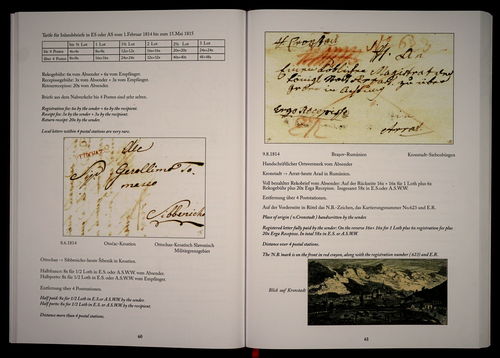 Tarife für Inlandsbriefe in ES oder AS vom 1.Februar 1814 bis zum 15.Mai 1815
bis ½ Lot 1 Lot 1½ Lot 2 Lot 2½ Lot 3 Lot
bis 4 Posten 4x+4x 8x+8x 12x+12x 16x+16x 20x+20x 24x+24x
über 4 Posten 8x+8x 16x+16x 24x+24x 32x+32x 40x+40x 48+48x
Rekogebühr: 6x vom Absender + 6x vom Empfänger.
Recepissegebühr: 3x vom Absender + 3x vom Empfänger.
Retourrecepisse: 20x vom Absender.
Briefe aus dem Nahverkehr bis 4 Posten sind sehr selten.
Registration fee 6x by the sender + 6x by the recipient.
Receipt fee 3x by the sender + 3x by the recipient.
Return receipt: 20x by the sender.
Local letters within 4 postal stations are very rare.
Gerollimo
Sibbenicho
8.6.1814 Otočac-Kroatien Ottochac-Kroatisch Slavonisch
Militärgrenzgebiet
Ottochau → Sibbenicho-heute Šibenik in Kroatien.
Halbfranco: 8x für 1/2 Loth in E.S. oder A.S.W.W. vom Absender.
Halbporto: 8x für 1/2 Loth in E.S. oder A.S.W.W. vom Empfänger.
Entfernung über 4 Poststationen.
Half paid: 8x for 1/2 Loth in E.S.or A.S.W.W. by the sender.
Half porto: 8x for 1/2 Loth in E.S. or A.S.W.W. by the recipient.
Distance more than 4 postal stations.
60
Cronstadt
Ergo Recepisse
Arras
9.8.1814 Braşov-Rumänien Kronstadt-Siebenbürgen
Handschriftlicher Ortsvermerk vom Absender
Kronstadt → Arras-heute Arad in Rumänien.
Voll bezahlter Rekobrief vom Absender: Auf der Rückseite 16x + 16x für 1 Loth plus 6x
Rekogebühr plus 20x Ergo Recepisse. Insgesamt 58x in E.S.oder A.S.W.W.
Entfernung über 4 Poststationen.
Auf der Vorderseite in Rötel das N.B.-Zeichen, das Kartierungsnummer No.623 und E.R.
Place of origin ( v.Cronstadt ) handwritten by the sender.
Registered letter fully paid by the sender: On the reverse 16x+ 16x for 1 Loth plus 6x registration fee plus
20x Ergo Recepisse. In total 58x in E.S. or A.S.W.W.
Distance over 4 postal stations.
The N.B. mark is on the front in red crayon, along with the registration number ( 623) and E.R.
Blick auf Kronstadt
61